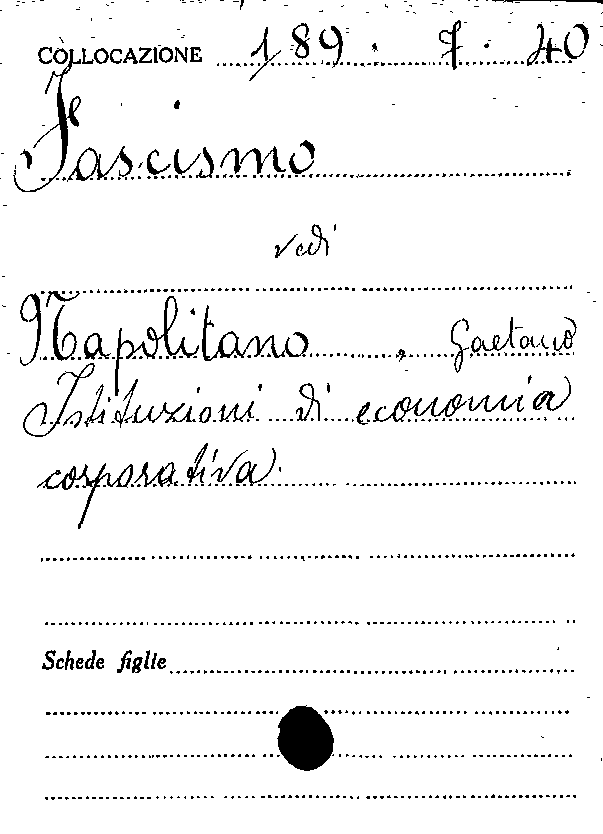 COLLOCAZIONE 189. 7. 40
Fascismo
vedi
Napolitano, Gaetano
Istituzioni di economia
corporativa.
Schede figlie